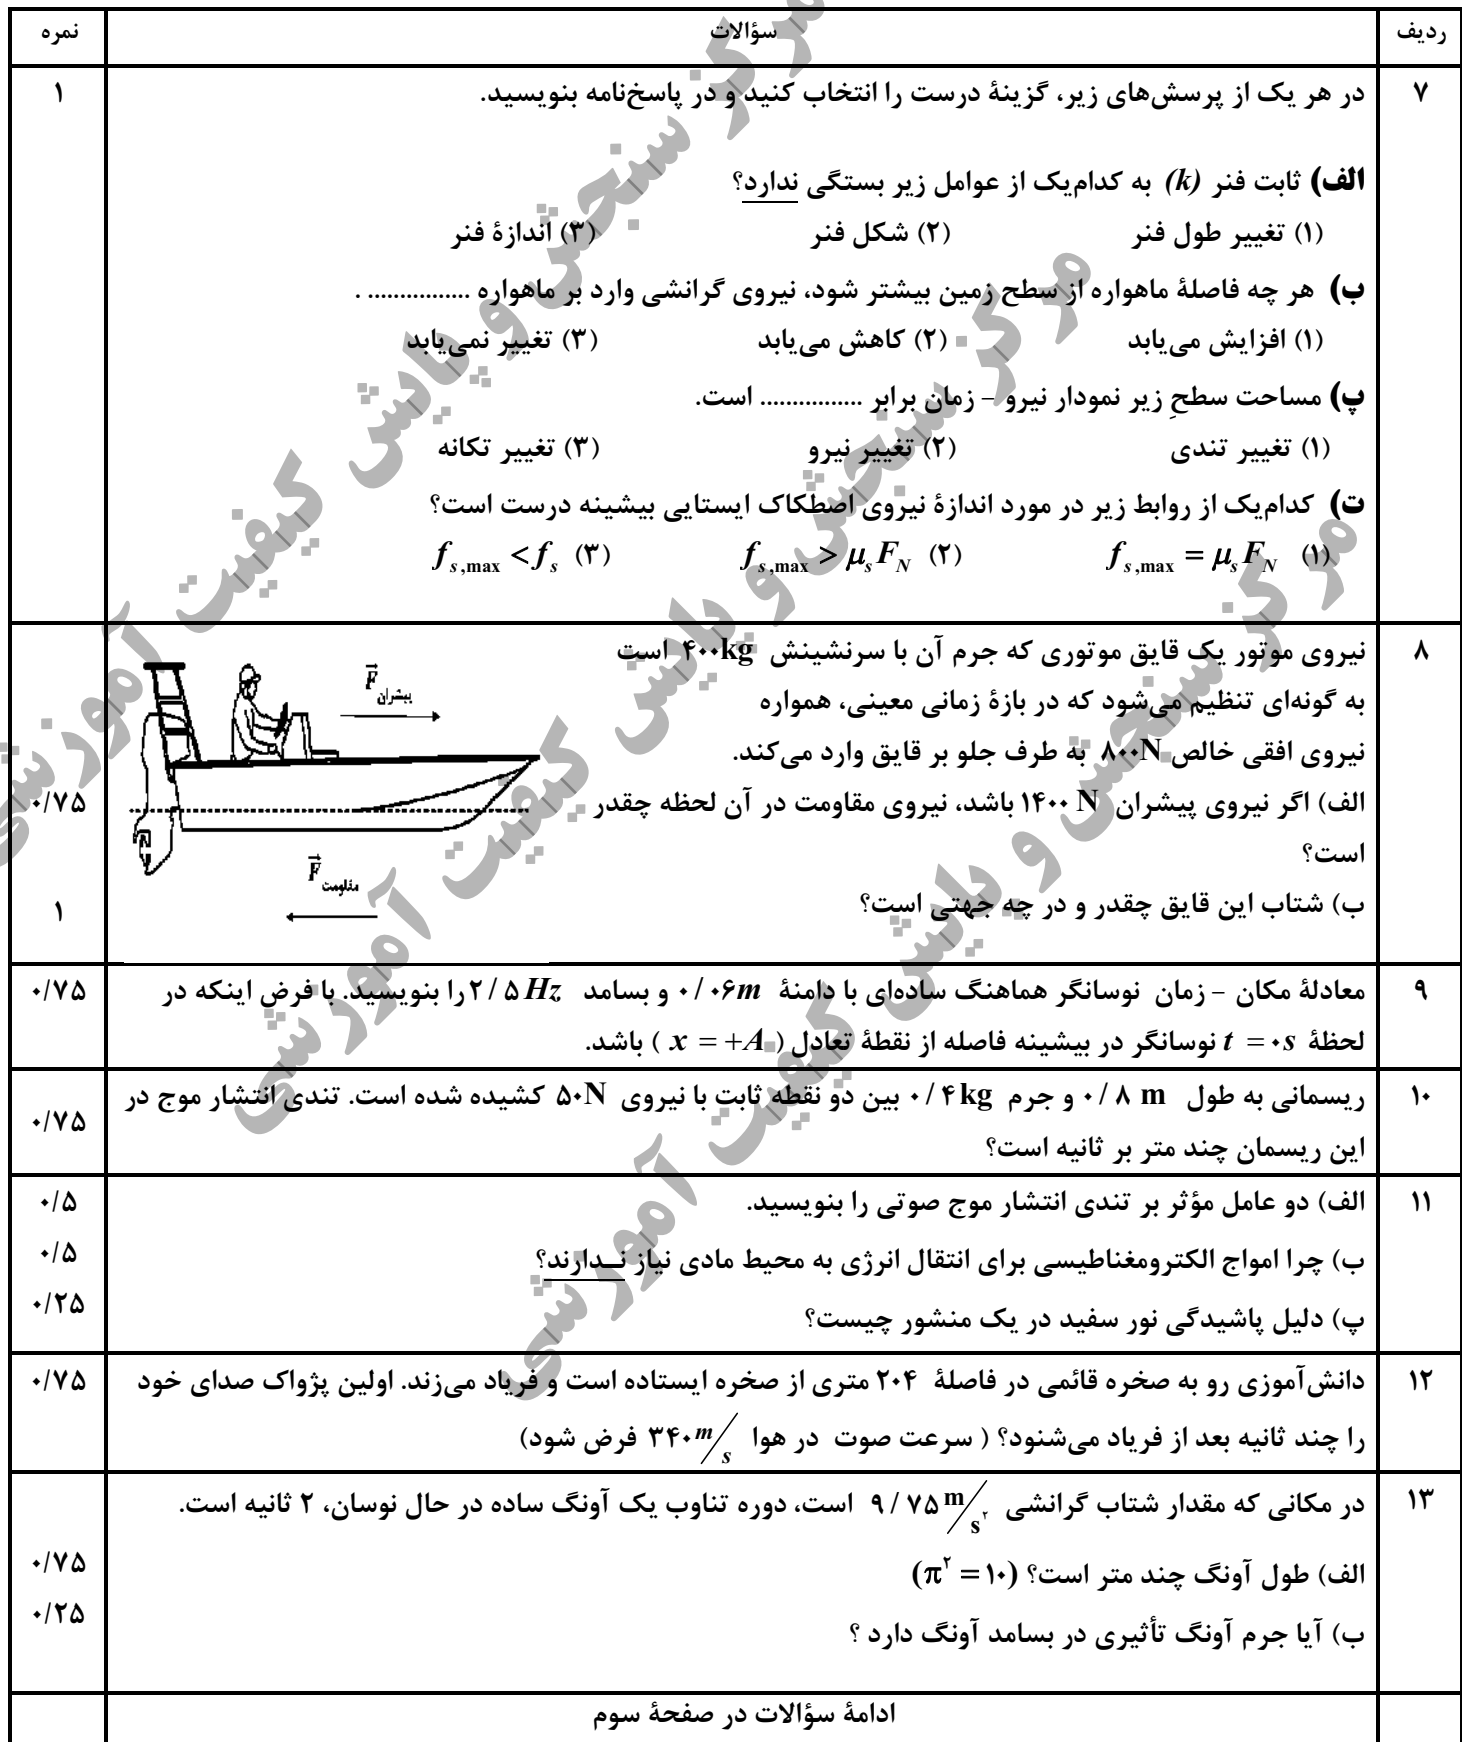 ردیف سؤالات نمره
۷ در هر یک از پرسش‌های زیر، گزینهٔ درست را انتخاب کنید و در پاسخ‌نامه بنویسید. ۱
الف) ثابت فنر (k) به کدام‌یک از عوامل زیر بستگی ندارد؟
(۱) تغییر طول فنر (۲) شکل فنر (۳) اندازهٔ فنر
ب) هر چه فاصلهٔ ماهواره از سطح زمین بیشتر شود، نیروی گرانشی وارد بر ماهواره ................ .
(۱) افزایش می‌یابد (۲) کاهش می‌یابد (۳) تغییر نمی‌یابد
پ) مساحت سطحِ زیر نمودار نیرو – زمان برابر ................ است.
(۱) تغییر تندی (۲) تغییر نیرو (۳) تغییر تکانه
ت) کدام‌یک از روابط زیر در مورد اندازهٔ نیروی اصطکاک ایستایی بیشینه درست است؟
(۱) f_{s,max} = μ_s F_N (۲) f_{s,max} > μ_s F_N (۳) f_{s,max} < f_s
۸ نیروی موتور یک قایق موتوری که جرم آن با سرنشینش ۴۰۰kg است
به گونه‌ای تنظیم می‌شود که در بازهٔ زمانی معینی، همواره
نیروی افقی خالص ۸۰۰N به طرف جلو بر قایق وارد می‌کند.
الف) اگر نیروی پیشران ۱۴۰۰ N باشد، نیروی مقاومت در آن لحظه چقدر ۰/۷۵
است؟
ب) شتاب این قایق چقدر و در چه جهتی است؟ ۱
F پیشران
F مقاومت
۹ معادلهٔ مکان – زمان نوسانگر هماهنگ ساده‌ای با دامنهٔ ۰/۰۶m و بسامد ۲/۵Hz را بنویسید. با فرض اینکه در ۰/۷۵
لحظهٔ t = ۰s نوسانگر در بیشینه فاصله از نقطهٔ تعادل ( x = +A ) باشد.
۱۰ ریسمانی به طول ۰/۸ m و جرم ۰/۴kg بین دو نقطه ثابت با نیروی ۵۰N کشیده شده است. تندی انتشار موج در ۰/۷۵
این ریسمان چند متر بر ثانیه است؟
۱۱ الف) دو عامل مؤثر بر تندی انتشار موج صوتی را بنویسید. ۰/۵
ب) چرا امواج الکترومغناطیسی برای انتقال انرژی به محیط مادی نیاز نــدارند؟ ۰/۵
پ) دلیل پاشیدگی نور سفید در یک منشور چیست؟ ۰/۲۵
۱۲ دانش‌آموزی رو به صخره قائمی در فاصلهٔ ۲۰۴ متری از صخره ایستاده است و فریاد می‌زند. اولین پژواک صدای خود ۰/۷۵
را چند ثانیه بعد از فریاد می‌شنود؟ ( سرعت صوت در هوا ۳۴۰ m/s فرض شود)
۱۳ در مکانی که مقدار شتاب گرانشی ۹/۷۵ m/s² است، دوره تناوب یک آونگ ساده در حال نوسان، ۲ ثانیه است.
الف) طول آونگ چند متر است؟ (π² = ۱۰) ۰/۷۵
ب) آیا جرم آونگ تأثیری در بسامد آونگ دارد ؟ ۰/۲۵
ادامهٔ سؤالات در صفحهٔ سوم
مرکز سنجش و پایش کیفیت آموزشی
مرکز سنجش و پایش کیفیت آموزشی
مرکز سنجش و پایش کیفیت آموزشی